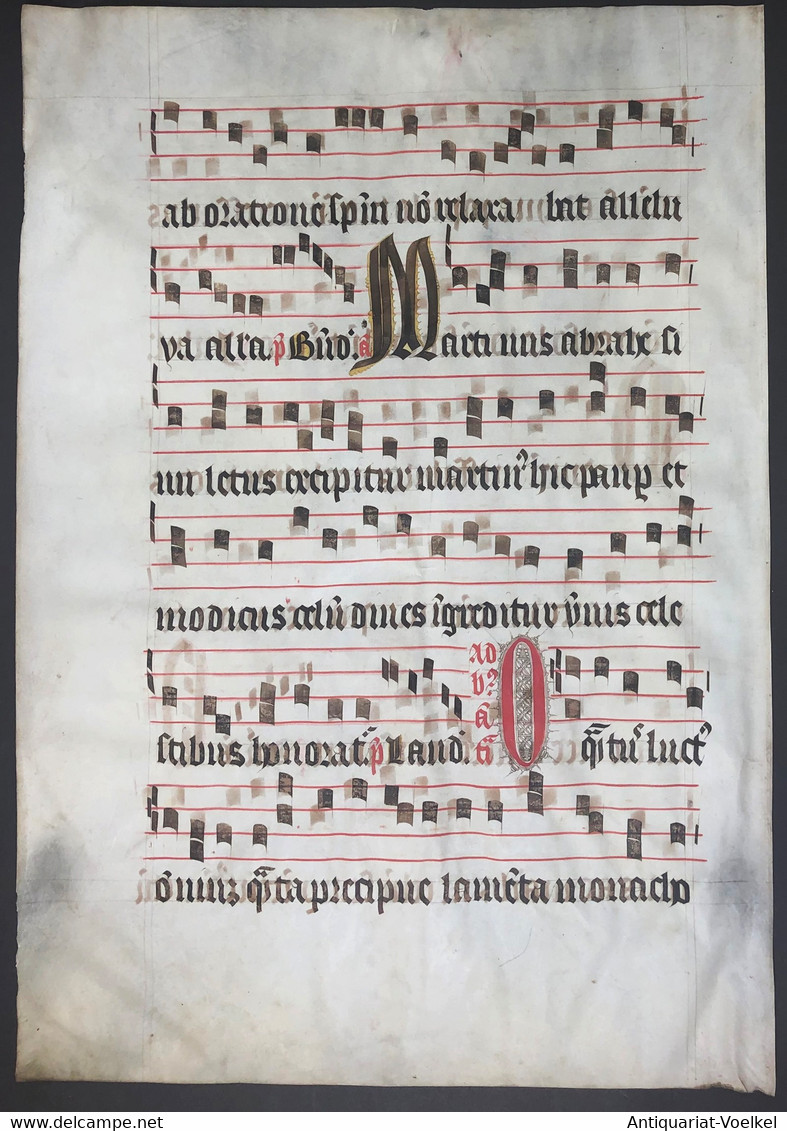 ab oratione spm̄ nō relaxa bat allelu
ya all'a. p̄ Bn̄d'. ā Martinus abrahe si
nu letus excipitur martin' hic paup et
modicus celū diues īgreditur ȳnis cele
stibus honorat'. p̄ Laud'. Ad b'. ā tī O q̄tus luct'
ōniū q̄ta precipue lamēta monacho
Antiquariat-Voelkel